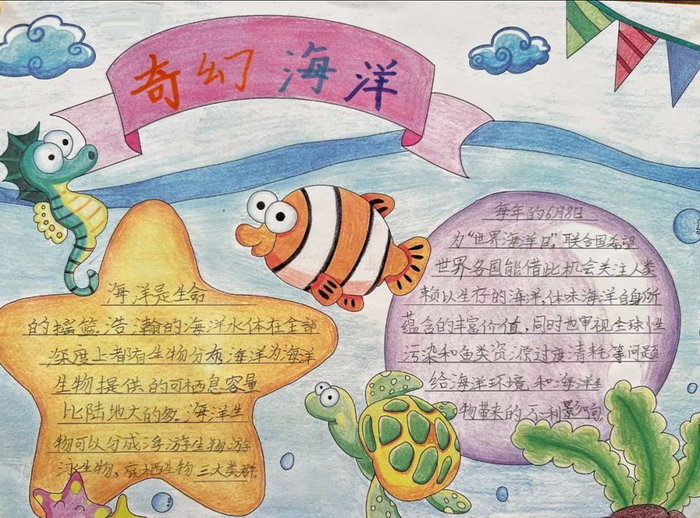 奇幻海洋
海洋是生命
的摇篮,浩瀚的海洋水体在全部
深度上都有生物分布,海洋为海洋
生物提供的可栖息容量
比陆地大的多.海洋生
物可以分成浮游生物、游
泳生物、底栖生物三大类群
每年的6月8日
为“世界海洋日”,联合国希望
世界各国能借此机会关注人类
赖以生存的海洋,体味海洋自身所
蕴含的丰富价值,同时也审视全球性
污染和鱼类资源过度消耗等问题
给海洋环境和海洋生
物带来的不利影响